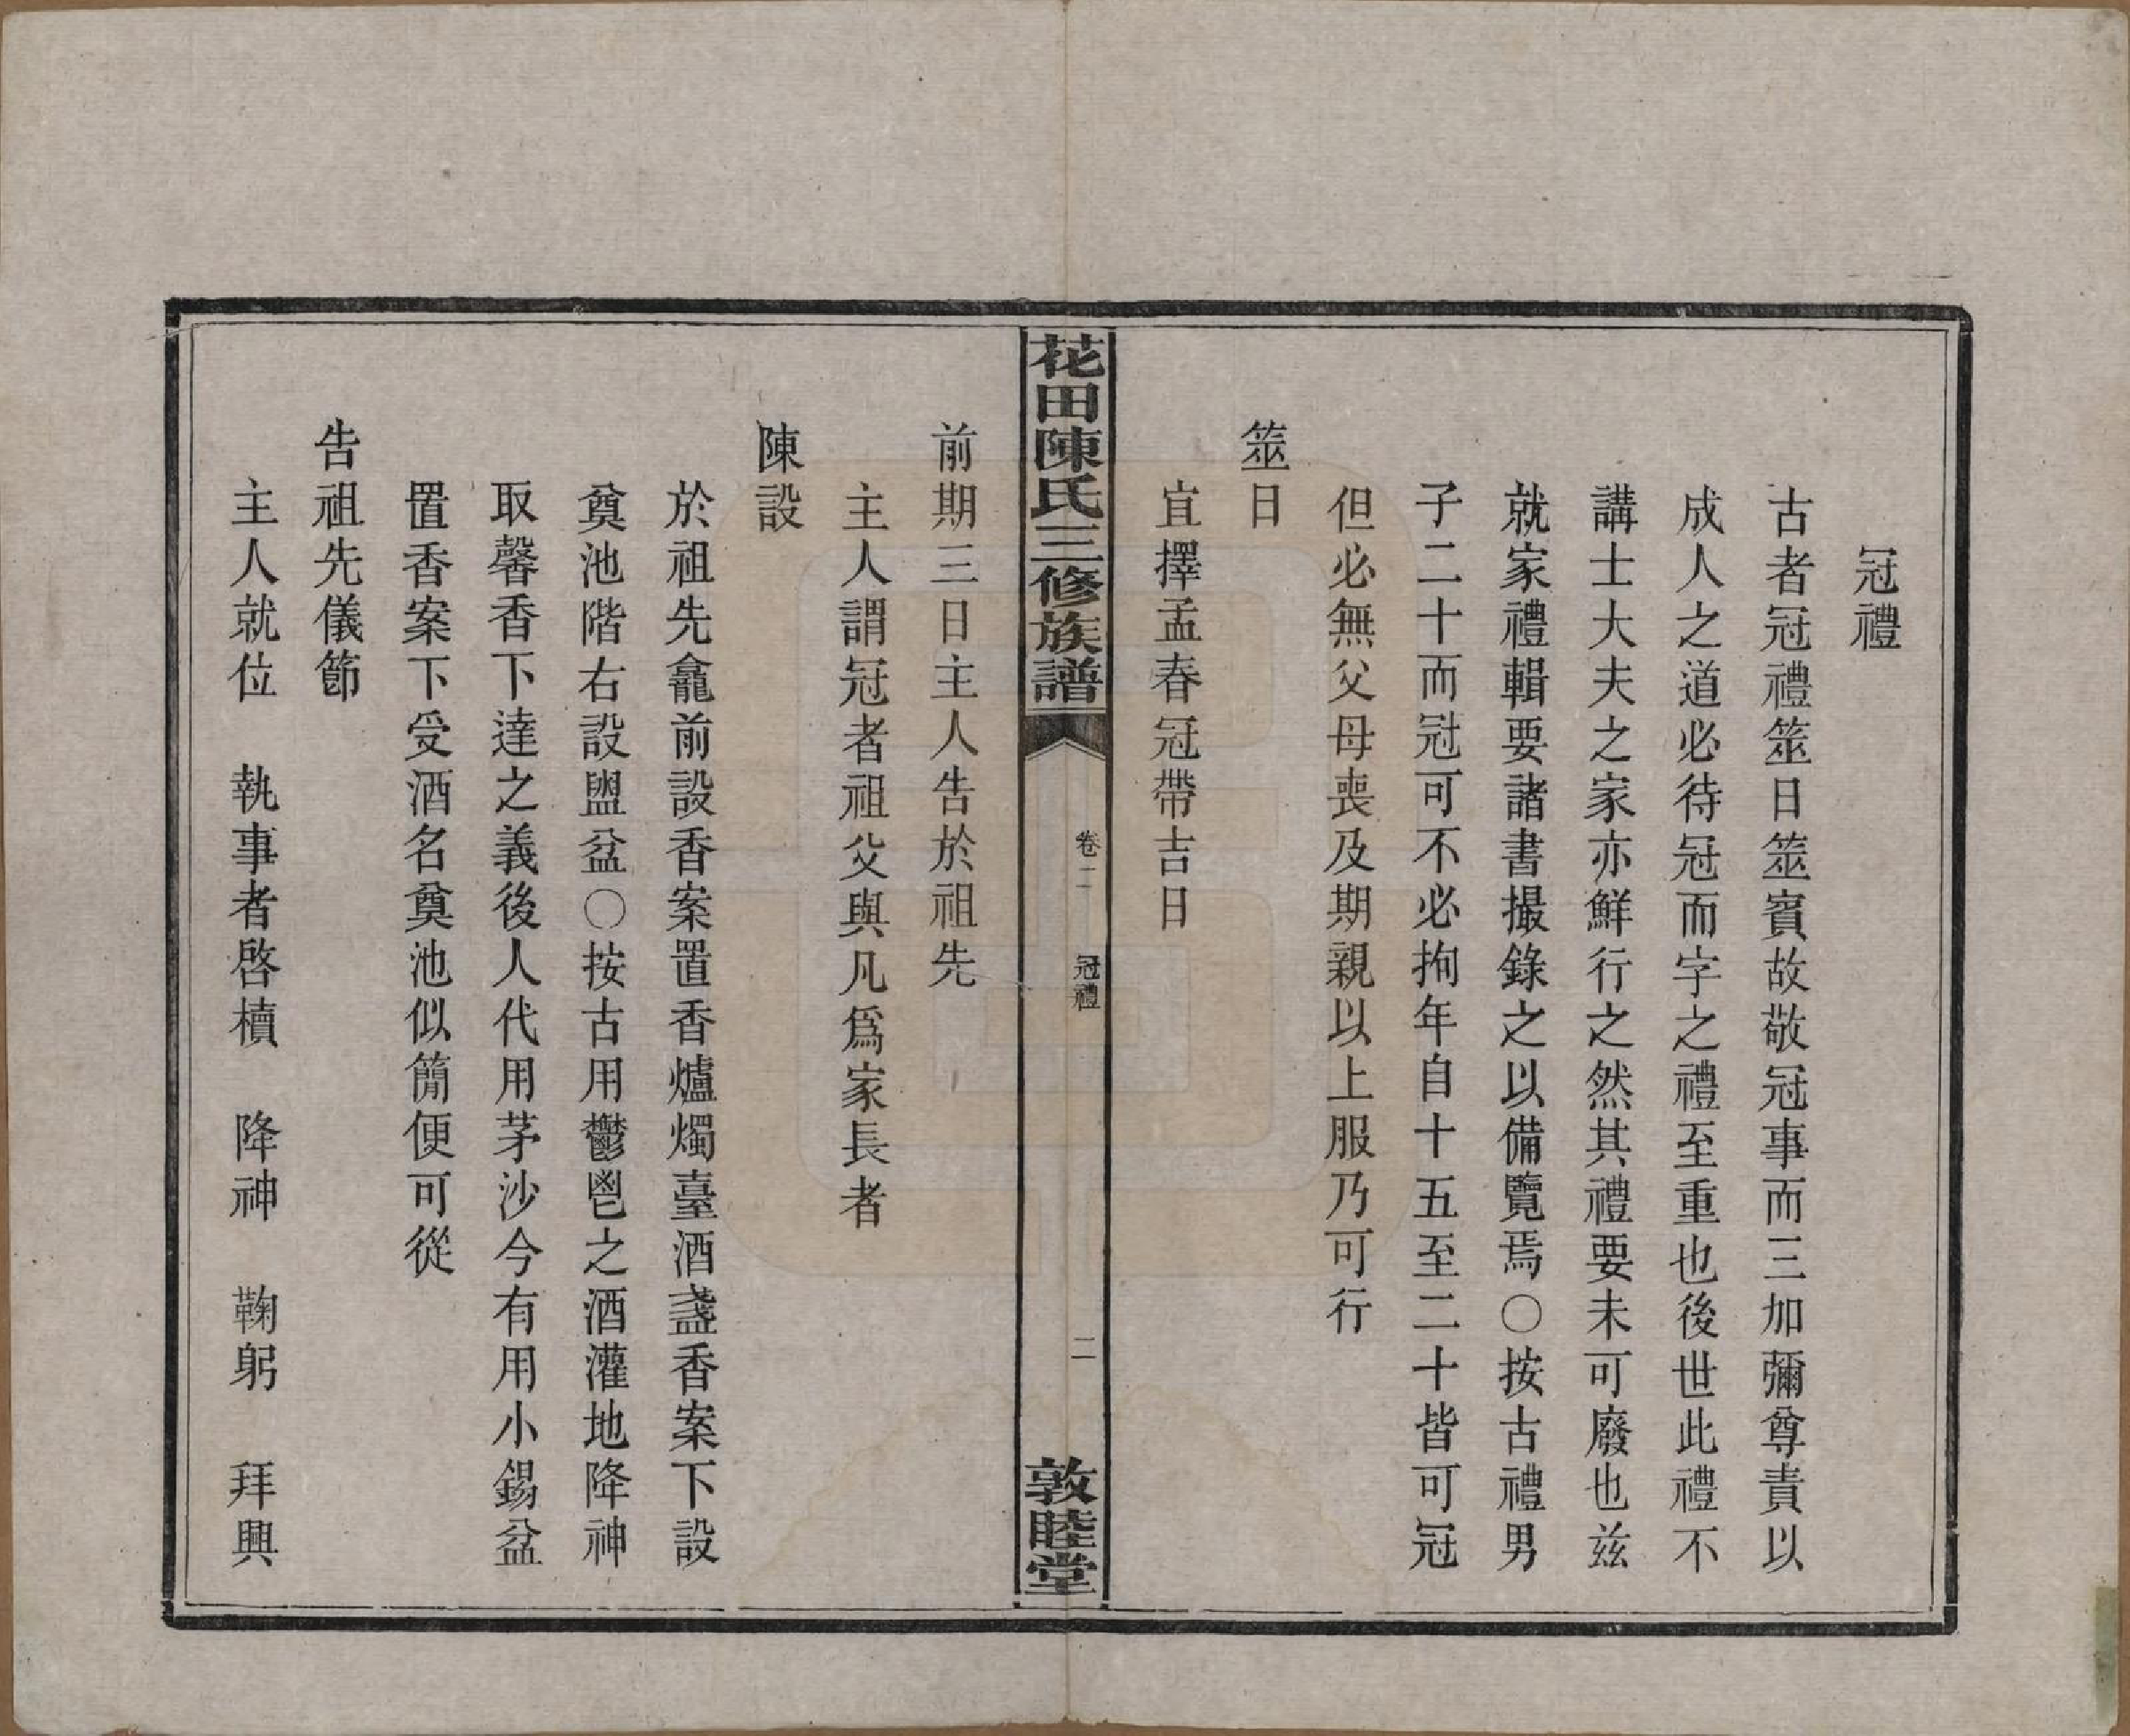 冠禮
古者冠禮筮日筮賓故敬冠事而三加彌尊責以
成人之道必待冠而字之禮至重也後世此禮不
講士大夫之家亦鮮行之然其禮要未可廢也兹
就家禮輯要諸書撮錄之以備覽焉○按古禮男
子二十而冠可不必拘年自十五至二十皆可冠
但必無父母喪及期親以上服乃可行
筮日
宜擇孟春冠帶吉日
花田陳氏三修族譜
卷二
冠禮
二
敦睦堂
前期三日主人告於祖先
主人謂冠者祖父與凡爲家長者
陳設
於祖先龕前設香案置香爐燭臺酒盞香案下設
奠池階右設盥盆○按古用鬱鬯之酒灌地降神
取馨香下達之義後人代用茅沙今有用小錫盆
置香案下受酒名奠池似簡便可從
告祖先儀節
主人就位　執事者啓櫝　降神　鞠躬　拜興